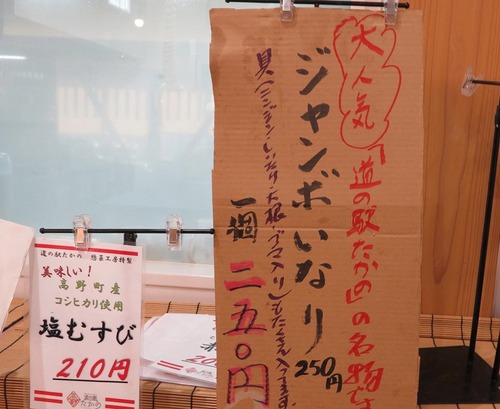 大人気「道の駅たかの」の名物です
ジャンボいなり
250円
具(ニンジン・しいたけ・大根・ゴマ入り)もたくさん入ってます。
一個 二五〇円
道の駅たかの 惣菜工房特製
美味しい!
高野町産
コシヒカリ使用
塩むすび
210円
道の駅
たかの